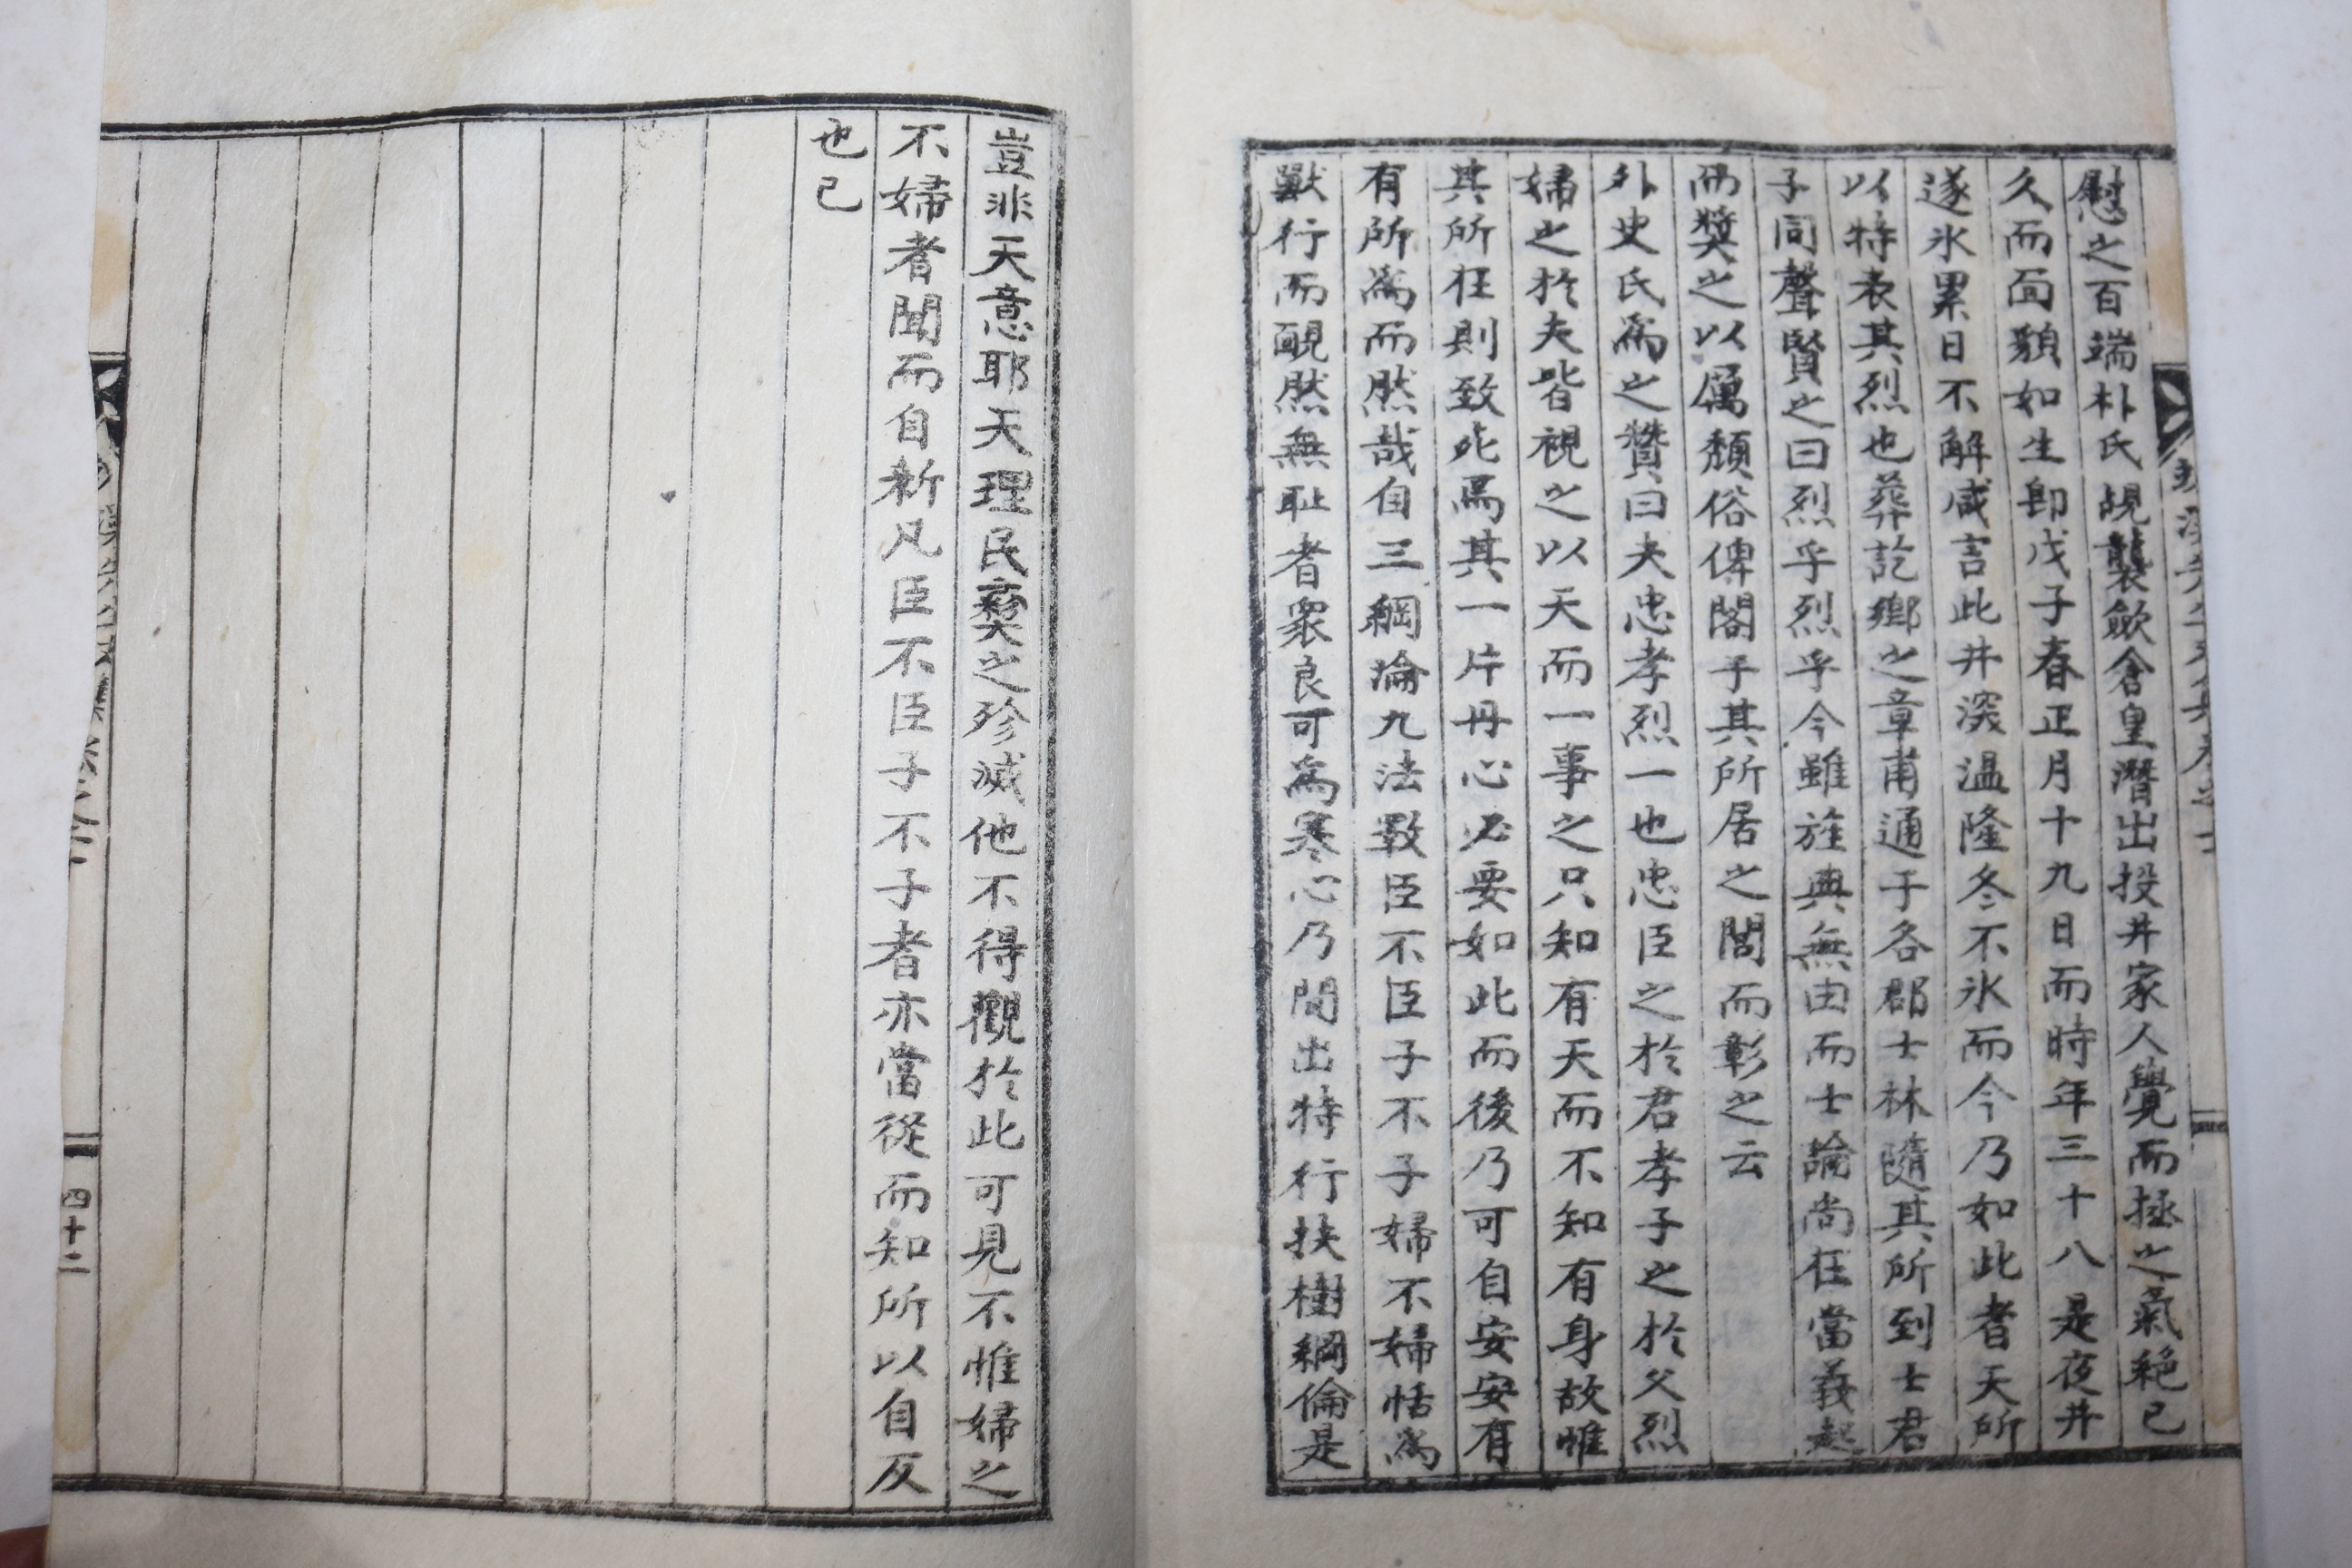 慰之百端朴氏覘襲斂倉皇潛出投井家人覺而拯之氣絕已
久而面顏如生卽戊子春正月十九日而時年三十八是夜井
遂氷累日不解咸言此井深溫隆冬不氷而今乃如此者天所
以特表其烈也葬訖鄉之章甫通于各郡士林隨其所到士君
子同聲賢之曰烈乎烈乎今雖旌典無由而士論尚在當義起
而奬之以厲頹俗俾閣于其所居之閭而彰之云
外史氏爲之贊曰夫忠孝烈一也忠臣之於君孝子之於父烈
婦之於夫皆視之以天而一事之只知有天而不知有身故惟
其所在則致死焉其一片丹心必要如此而後乃可自安安有
有所爲而然哉自三綱淪九法斁臣不臣子不子婦不婦恬爲
獸行而靦然無恥者衆良可爲寒心乃間出特行扶樹綱倫是
豈非天意耶天理民彛之殄滅他不得觀於此可見不惟婦之
不婦者聞而自新凡臣不臣子不子者亦當從而知所以自反
也已
四十二